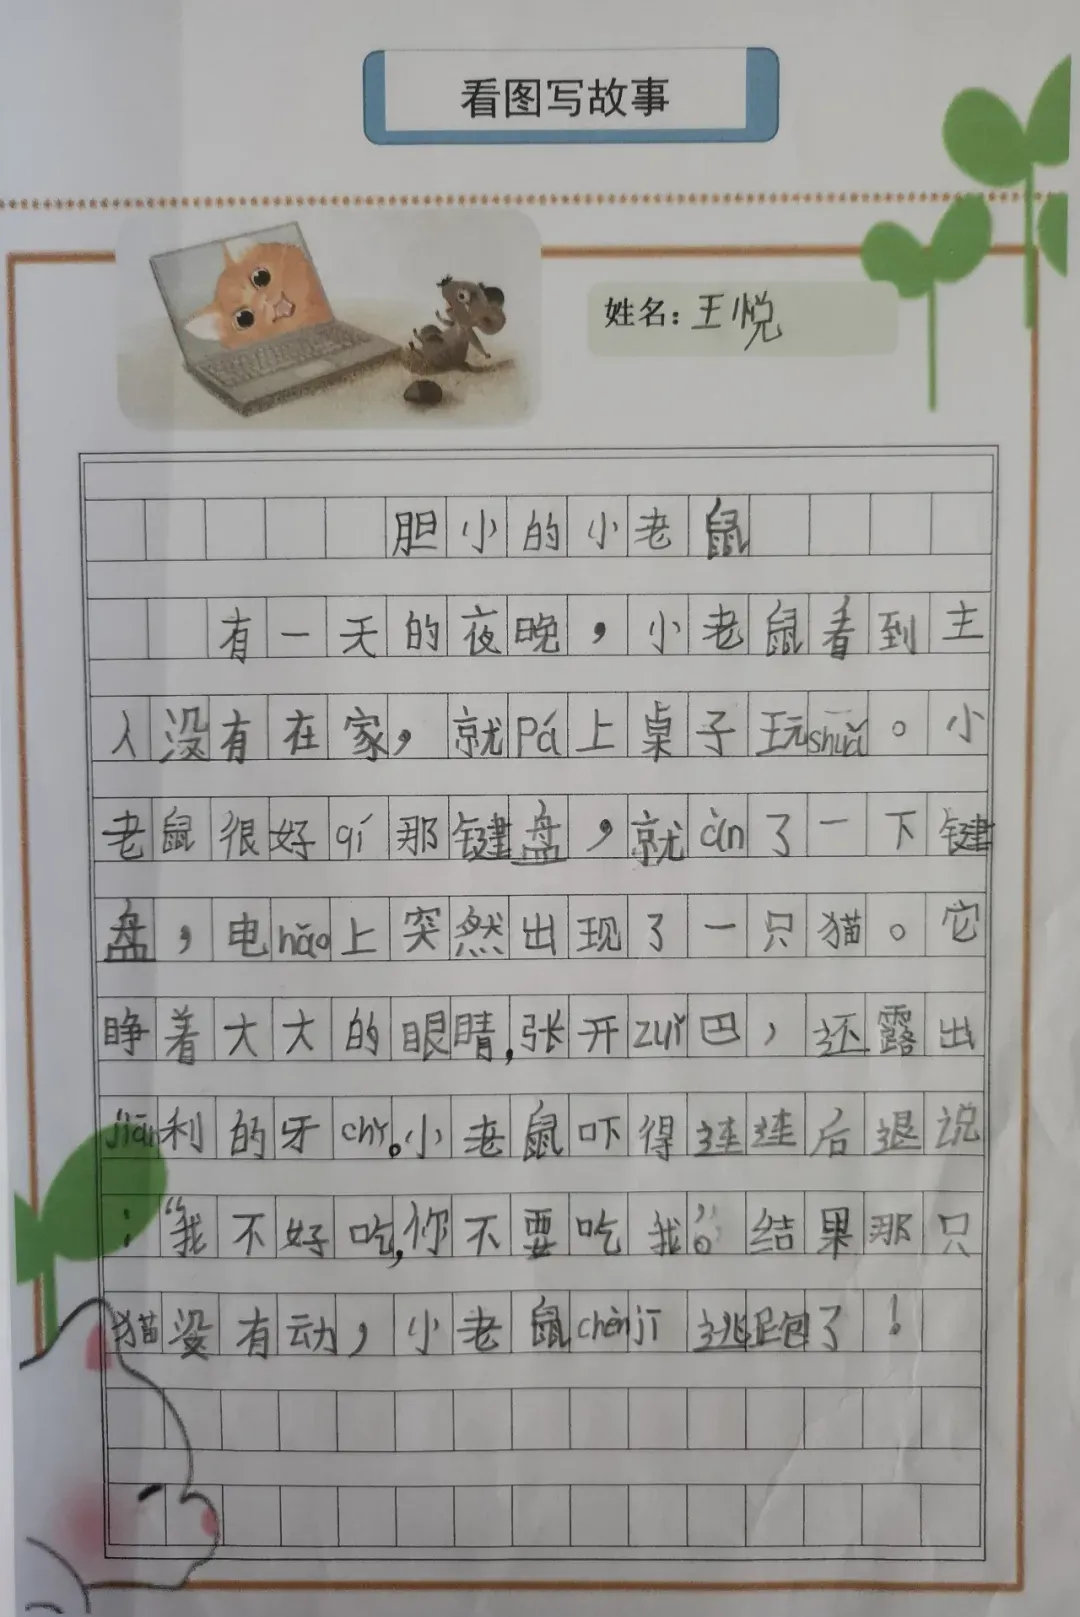 看图写故事
姓名：王悦
胆小的小老鼠
有一天的夜晚，小老鼠看到主
人没有在家，就pá上桌子玩shuǎ。小
老鼠很好qí那键盘，就àn了一下键
盘，电nǎo上突然出现了一只猫。它
睁着大大的眼睛，张开zuǐ巴，还露出
jiān利的牙chǐ。小老鼠吓得连连后退说
：“我不好吃，你不要吃我。”结果那只
猫没有动，小老鼠chènjī逃跑了！